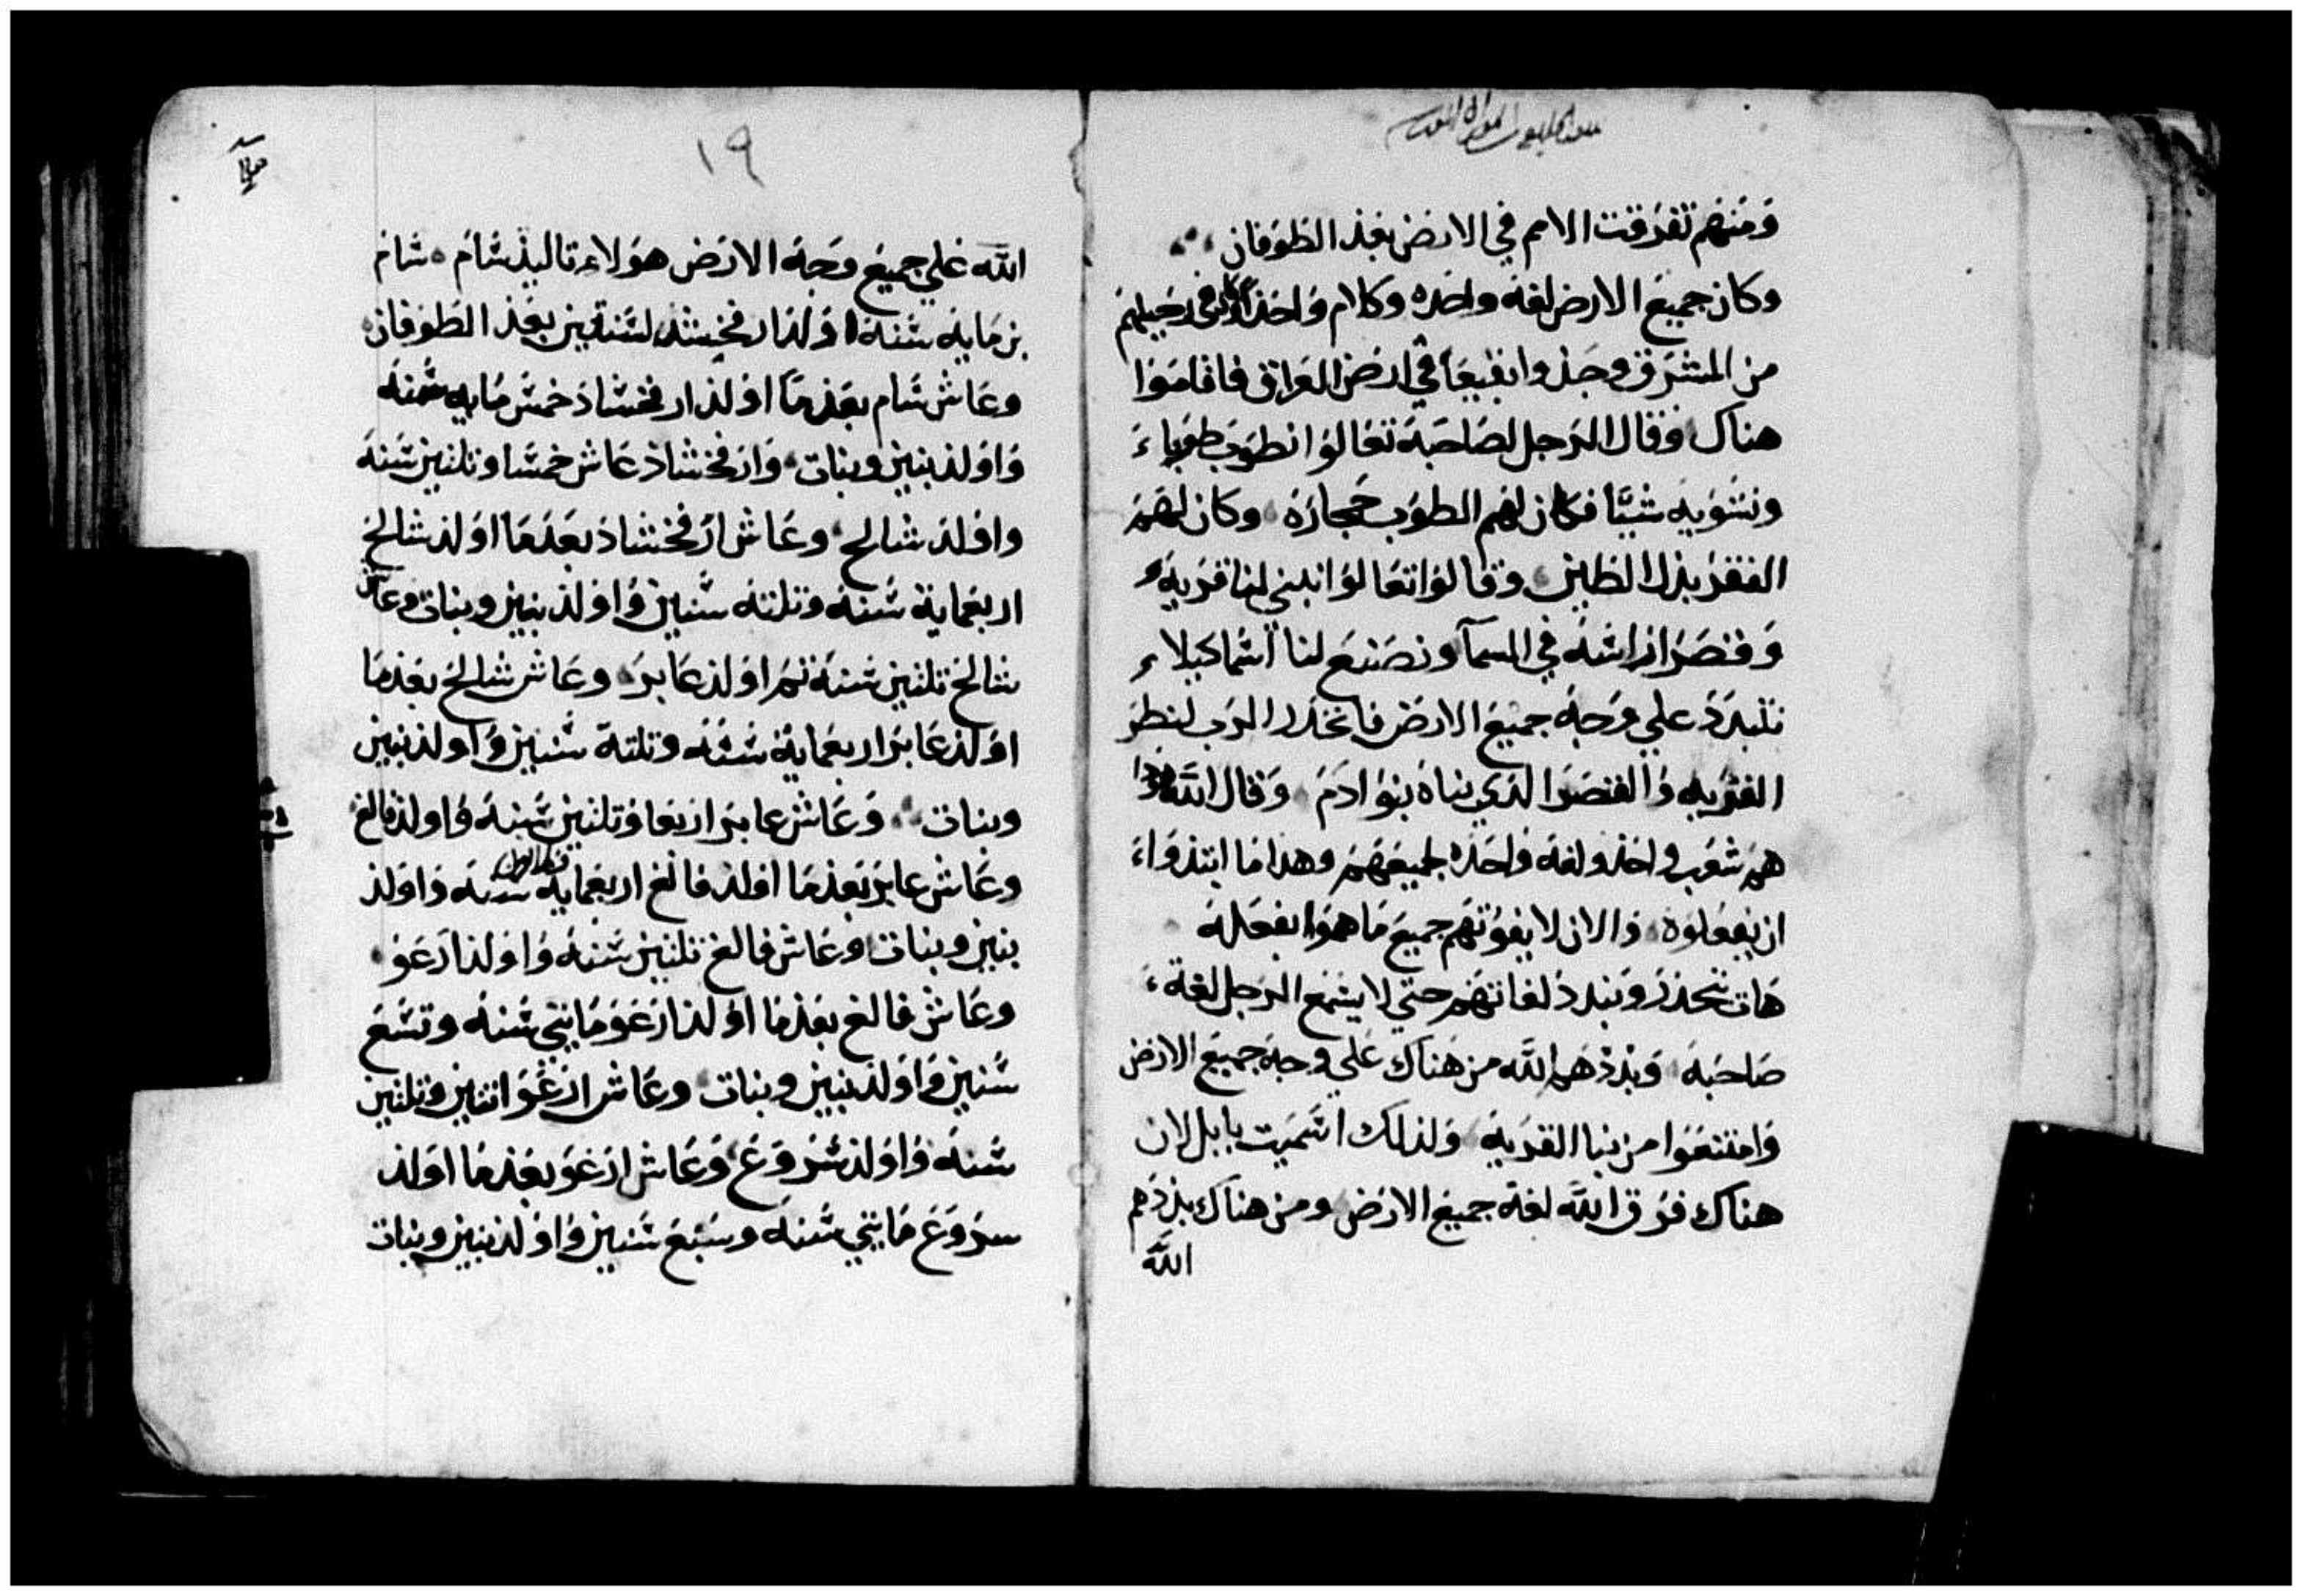 ومنهم تفرقت الامم في الارض بعد الطوفان
وكان جميع الارض لغة واحده وكلام واحد وفي رحيلهم
من المشرق وجدوا بقيعا في ارض العراق فاقاموا
هناك وقال الرجل لصاحبة تعالوا نطوب طوبا
ونشويه شيّا فكان لهم الطوب حجارة وكان لهم
القفر بدل الطين وقالوا تعالوا نبني لنا قرية
وقصرا راسة في السمآ ونصنع لنا اسما كيلا
نتبدد علي وجة جميع الارض فانحدر الرب لينظر
القرية والقصر الذي بناه بنو ادم وقال الله هوذا
هم شعب واحد ولغة واحدة لجميعهم وهذا ما ابتدوا
ان يفعلوة والان لا يفوتهم جميع ما هموا بفعله
هات ننحدر ونبدد لغاتهم حتي لا يسمع الرجل لغة
صاحبة وبددهم الله من هناك علي وجة جميع الارض
وامتنعوا من بنا القرية ولذلك اسميت بابل لان
هناك فرق الله لغة جميع الارض ومن هناك بددهم
الله
١٩
الله علي جميع وجة الارض هولاء تاليد شام شام
بن ماية سنة اولد ارفخشد لسنتين بعد الطوفان
وعاش شام بعد ما اولد ارفخشاد خمس ماية سنة
واولد بنين وبنات وارفخشاد عاش خمسا وتلتين سنة
واولد شالح وعاش ارفخشاد بعد ما اولد شالخ
اربعماية سنة وتلتة سنين واولد بنين وبنات وعاش
شالخ تلتين سنة تم اولد عابر وعاش شالخ بعد ما
اولد عابر اربعماية سنة وتلتة سنين واولد بنين
وبنات وعاش عابر اربعا وتلتين سنة واولد فالغ
وعاش عابر بعد ما اولد فالغ اربعماية سنة واولد
بنين وبنات وعاش فالغ تلتين سنة واولد ارغو
وعاش فالغ بعد ما اولد ارغو مايتي سنة وتسع
سنين واولد بنين وبنات وعاش ارغو اتنين وتلتين
سنة واولد سروغ وعاش ارغو بعد ما اولد
سروغ مايتي سنة وسبع سنين واولد بنين وبنات